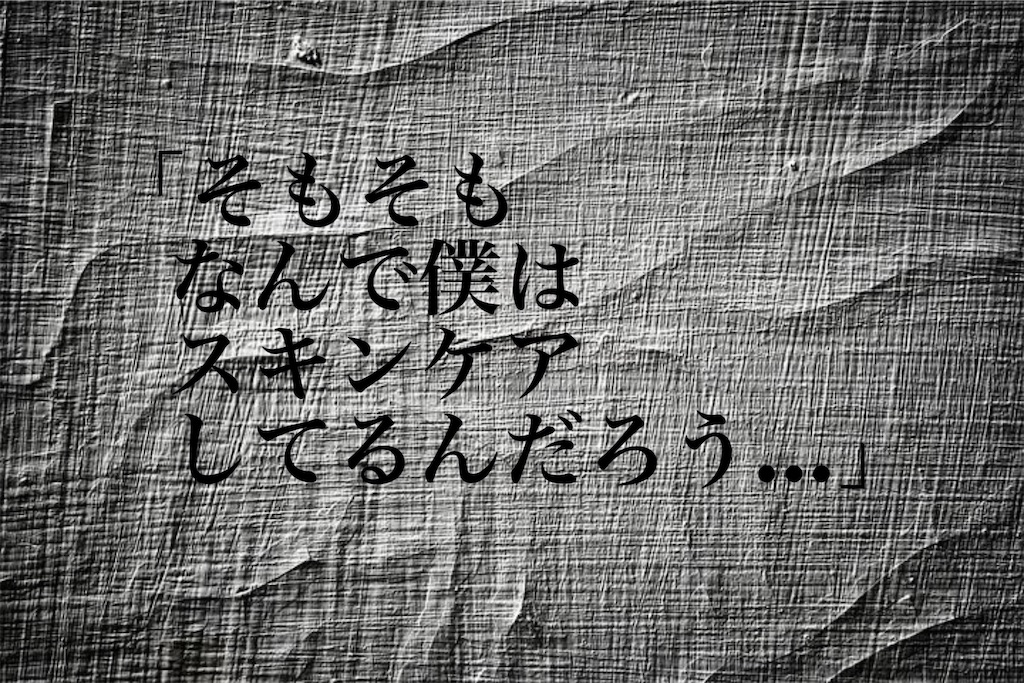 「そもそも
なんで僕は
スキンケア
してるんだろう...」